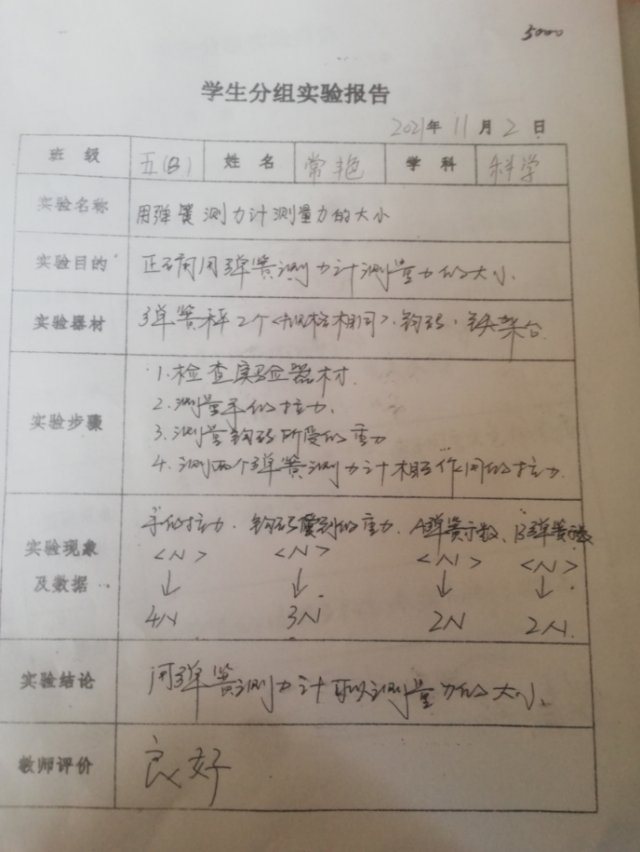 5000
学生分组实验报告
2021年 11月 2日
班级 五(3) 姓名 常艳 学科 科学
实验名称 用弹簧测力计测量力的大小
实验目的 正确用弹簧测力计测量力的大小.
实验器材 弹簧秤2个<规格相同>、钩码、铁架台.
1.检查实验器材.
2.测量手的拉力.
实验步骤
3.测量钩码所受的重力
4.测两个弹簧测力计相互作用的拉力.
手的拉力. 钩码受到的重力. A弹簧示数、B弹簧示数
实验现象 <N> <N> <N> <N>
及数据 ↓ ↓ ↓ ↓
4N 3N 2N 2N.
实验结论 用弹簧测力计可以测量力的大小.
教师评价 良好